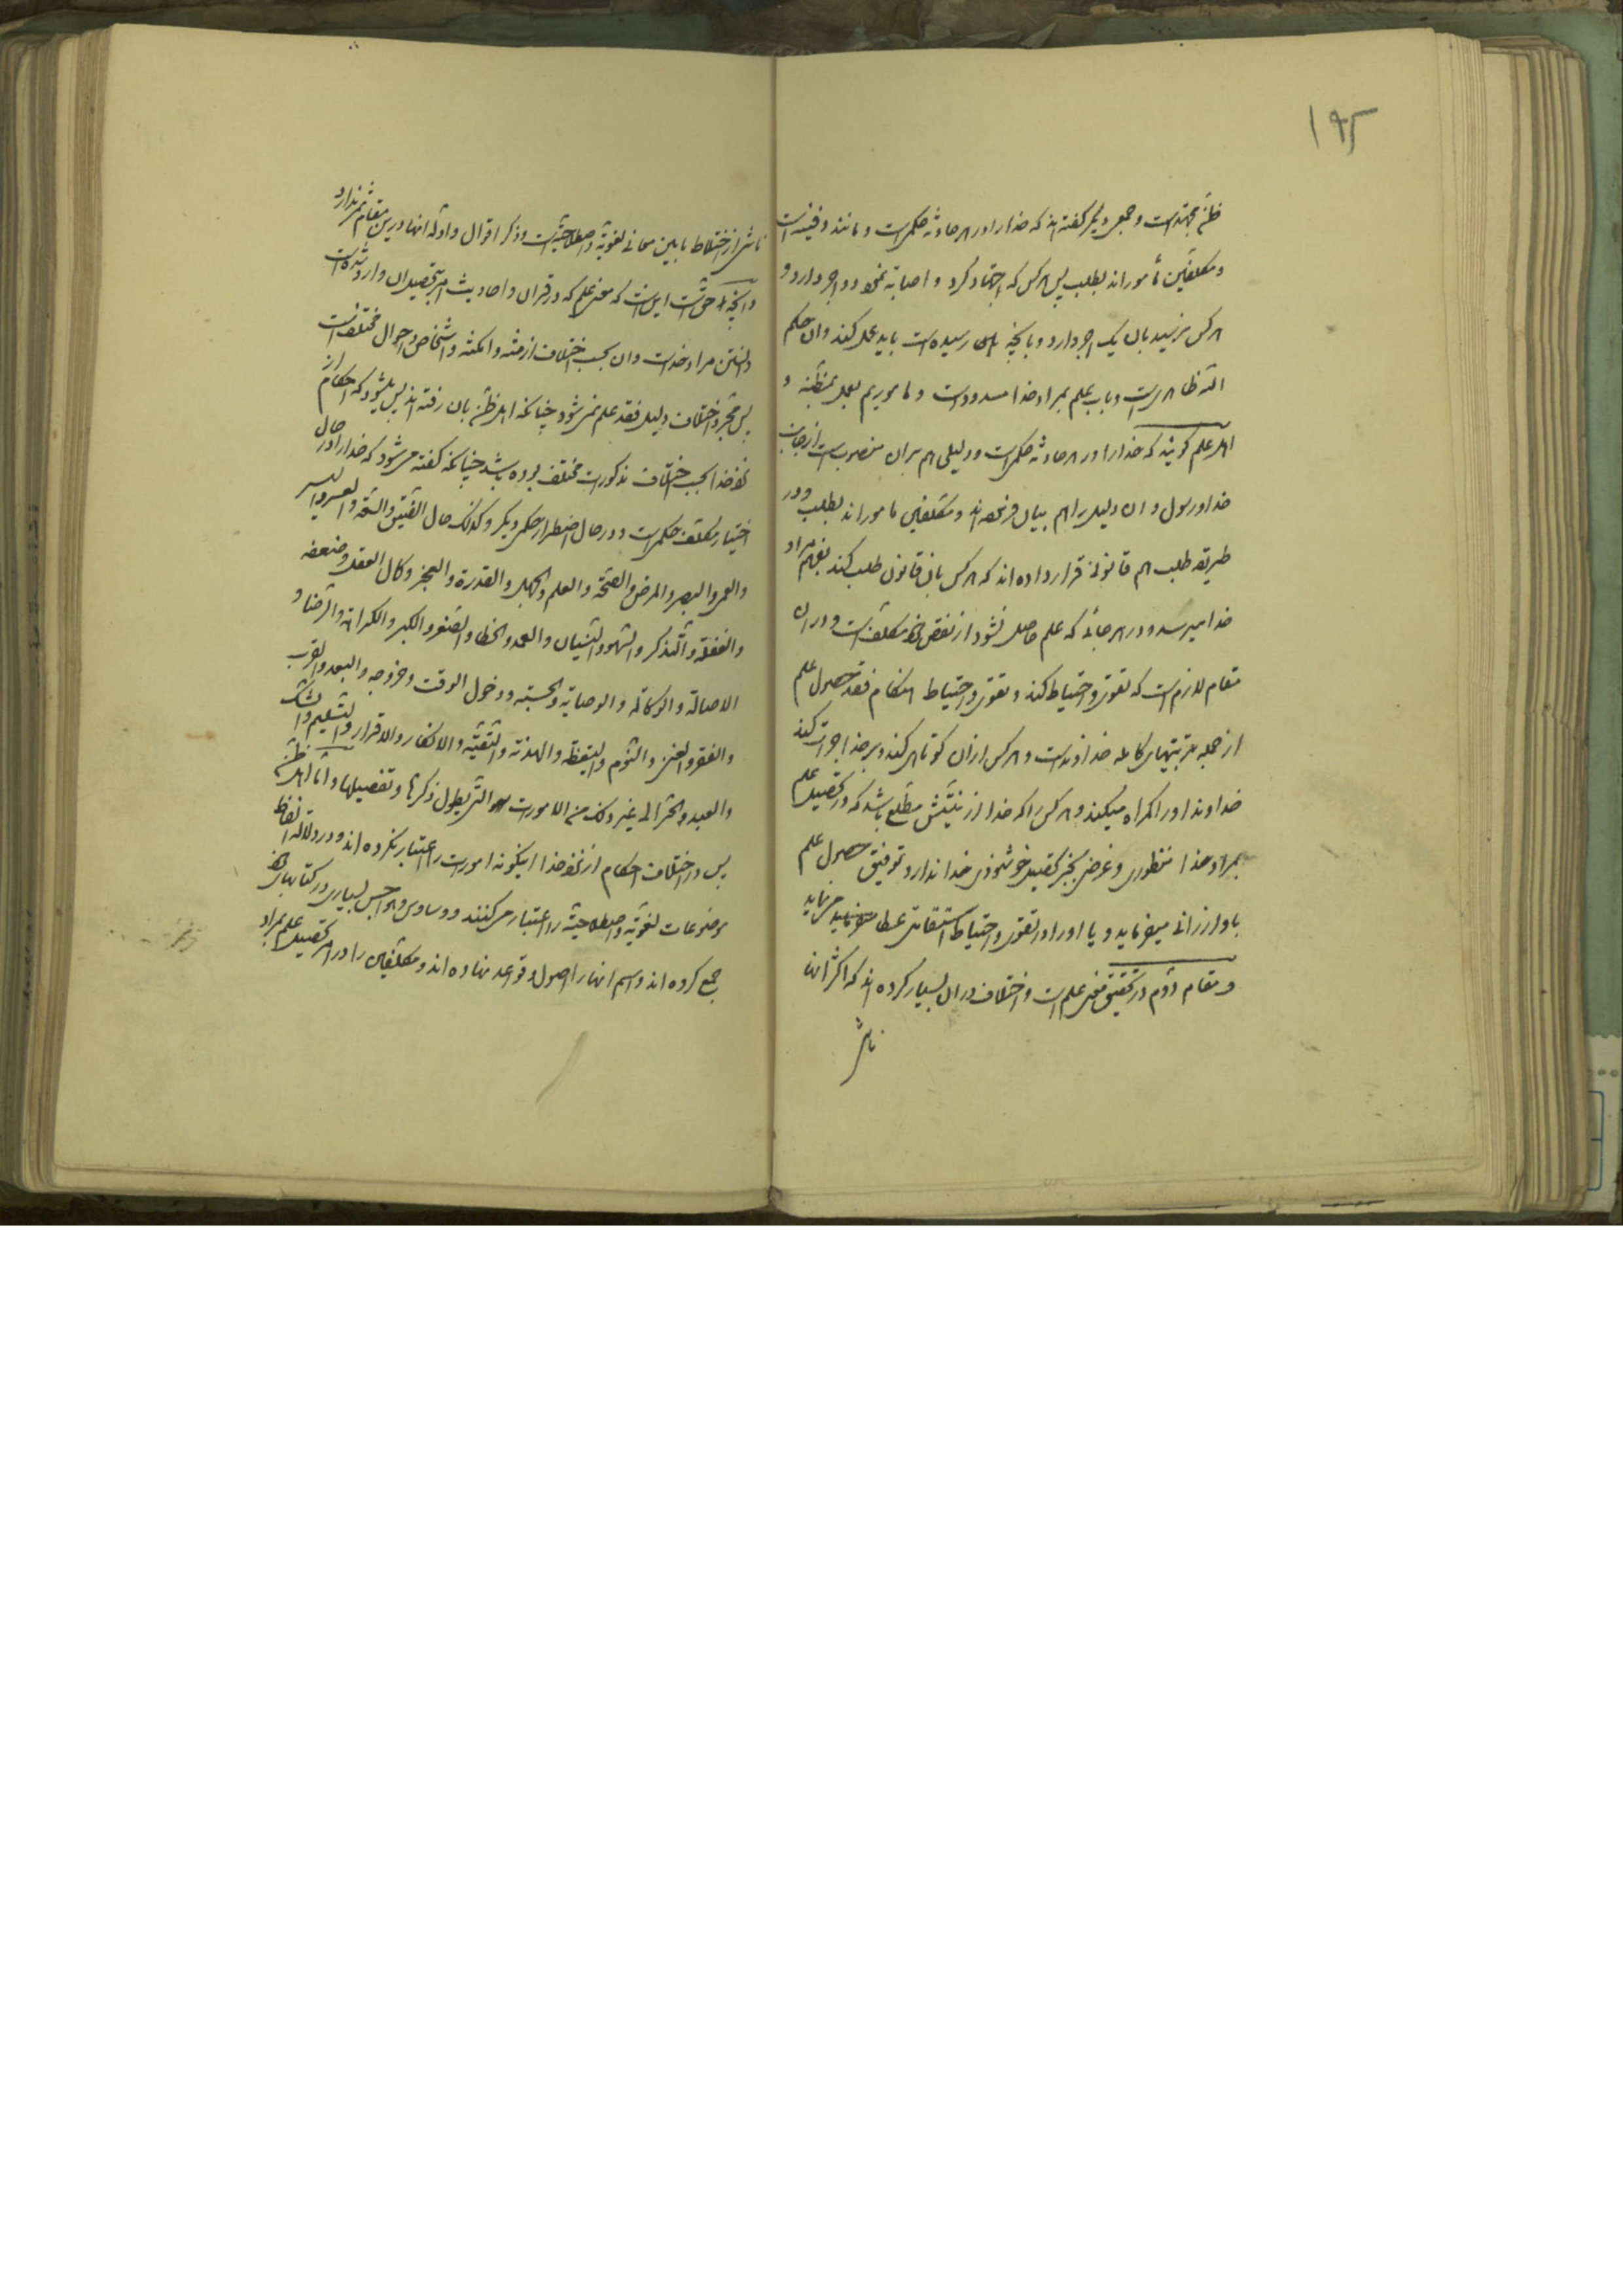 ۱۹۵
ظن مجتهد است و جمعی دیگر گفته اند که خدا را در هر حادثه حکمی است و مانند دفینه است
و مکلفین مأموراند بطلب پس هر کس که اجتهاد کرد و اصابه نمود دو اجر دارد و
هر کس نرسید بان یک اجر دارد و بانچه رسیده است باید عمل کند و ان حکم
الله ظاهری است و باب علم بمراد خدا مسدود است و ماموریم بعمل بمظنه و
اهل علم گویند که خدا را در هر حادثه حکمی است و دلیلی هم بران منصوب است از جانب
خدا و رسول و ان دلیل را هم بیان فرموده اند و مکلفین ماموراند بطلب و در
طریقه طلب هم قانونی قرار داده اند که هر کس بان قانون طلب کند بفهم مراد
خدا میرسد و در هر جائی که علم حاصل نشود از نقص خود مکلف است و در ان
مقام لازم است که تقوی و احتیاط کند و تقوی و احتیاط هنگام فقد حصول علم
از جمله مرتبتهای کامله خداوند است و هر کس ازان کوتاهی کند و بر خدا جرات کند
خداوند او را گمراه میکند و هر کس را که خدا از نیتش مطلع باشد که در تحصیل علم
بمراد خدا منظوری و غرضی بجز تحصیل خوشنودی خدا ندارد توفیق حصول علم
باو ارزانی میفرماید و یا او را در تقوی و احتیاط استقامتی عطا میفرماید
و مقام دوم در تحقیق معنی علم است و اختلاف دران بسیار کرده اند که اکثر انها
ناشی
ناشی از اختلاط مابین معانی لغویه و اصطلاحیه است و ذکر اقوال و ادله انها درین مقام ثمر ندارد
و انچه حق است این است که معنی علم که در قران و احادیث امر بتحصیل ان وارد شده است
دانستن مراد خداست و ان بحسب اختلاف ازمنه و امکنه و اشخاص و احوال مختلف است
پس بمجرد اختلاف دلیل فقد علم نمی شود چنانکه اهل ظن بان رفته اند بلی میشود که احکام از
نزد خدا بحسب اختلاف مذکورات مختلف بوده باشد چنانکه گفته میشود که خدا را در حال
اختیار مکلف حکمی است و در حال اضطرار حکمی دیگر و کذلک حال الضیق و السعه و العسر و الیسر
و العمی و البصر و المرض و الصحة و العلم و الجهل و القدرة و العجز و کمال العقل و ضعفه
و الغفلة و التذکر و السهو و النسیان و العمد و الخطا و الصغر و الکبر و الکراهة و الرضا و
الاصالة و الوکالة و الوصایة و الحسبة و دخول الوقت و خروجه و البعد و القرب
و الفقر و الغنی و النوم و الیقظة و الهدنة و التقیة و الانکار و الاقرار و التسلیم و الشک
و العبد و الحر الی غیر ذلک من الامورات التی یطول ذکرها و تفصیلها و اما اهل ظن
پس در اختلاف احکام از نزد خدا اینگونه امورات را اعتبار نکرده اند و در دلالة الفاظ
موضوعات لغویه و اصطلاحیه را اعتبار می کنند و وساوس و هواجس بسیاری در کتابهای خود
جمع کرده اند و اسم انها را اصول و قواعد نهاده اند و مکلفین را در امر تحصیل علم بمراد